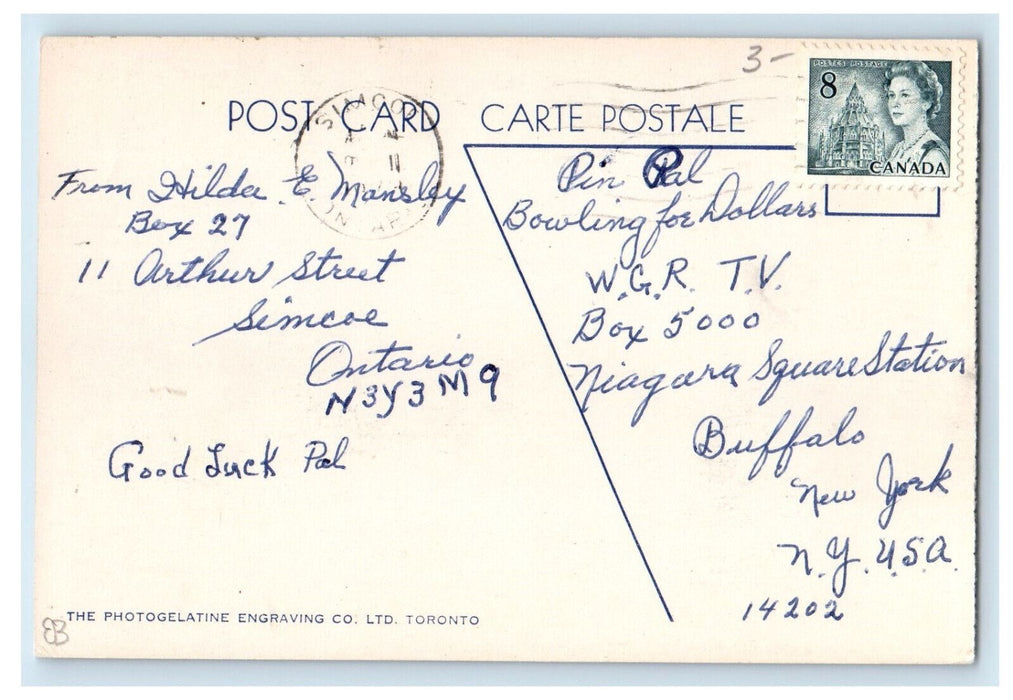 3-
POSTES POSTAGE
8
CANADA
POST CARD CARTE POSTALE
SIMCOE
ONTARIO
From Hilda E. Mansley
Box 27
11 Arthur Street
Simcoe
Ontario
N3Y3M9
Good Luck Pal
Pin Pal
Bowling for Dollars
W.G.R. T.V.
Box 5000
Niagara Square Station
Buffalo
New York
N.Y. U.S.A.
14202
THE PHOTOGELATINE ENGRAVING CO. LTD. TORONTO
EB